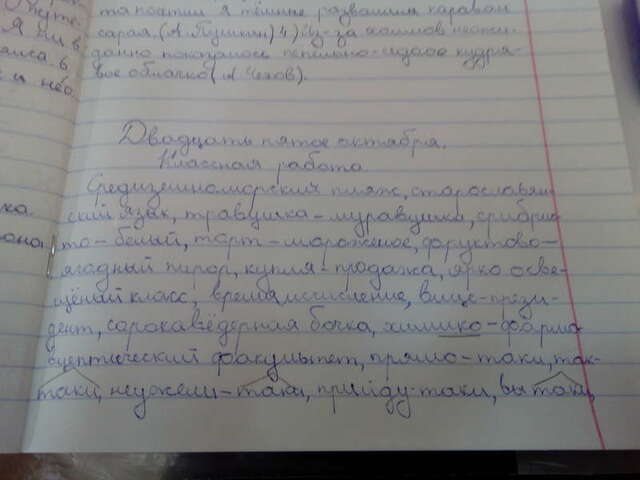 Я ни в
та постили я тёмные развалины караван
сарая. (А. Пушкин) 4) Из-за холмов неожи-
данно показалось пепельно-седое кудря-
вое облачко (А. Чехов).
Двадцать пятое октября.
Классная работа
Средиземноморский пляж, старославян
ский язык, травушка-муравушка, серебрис
то-белый, торт-мороженое, фруктово-
ягодный пирог, купля-продажа, ярко осве-
щёный класс, времяисчисление, вице-прези-
дент, сорокаведёрная бочка, химико-фарма
вцептический факультет, прямо-таки, так-
таки, неужели-таки, прийду-таки, вы таки,